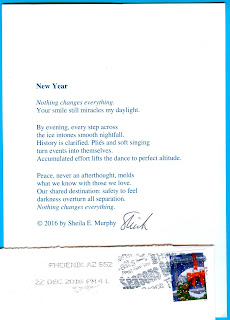 New Year
Nothing changes everything.
Your smile still miracles my daylight.
By evening, every step across
the ice intones smooth nightfall.
History is clarified. Pliés and soft singing
turn events into themselves.
Accumulated effort lifts the dance to perfect altitude.
Peace, never an afterthought, melds
what we know with those we love.
Our shared destination: safety to feel
darkness overturn all separation.
Nothing changes everything.
© 2016 by Sheila E. Murphy Sheila
PHOENIX AZ 852
22 DEC 2016 PM 4 L